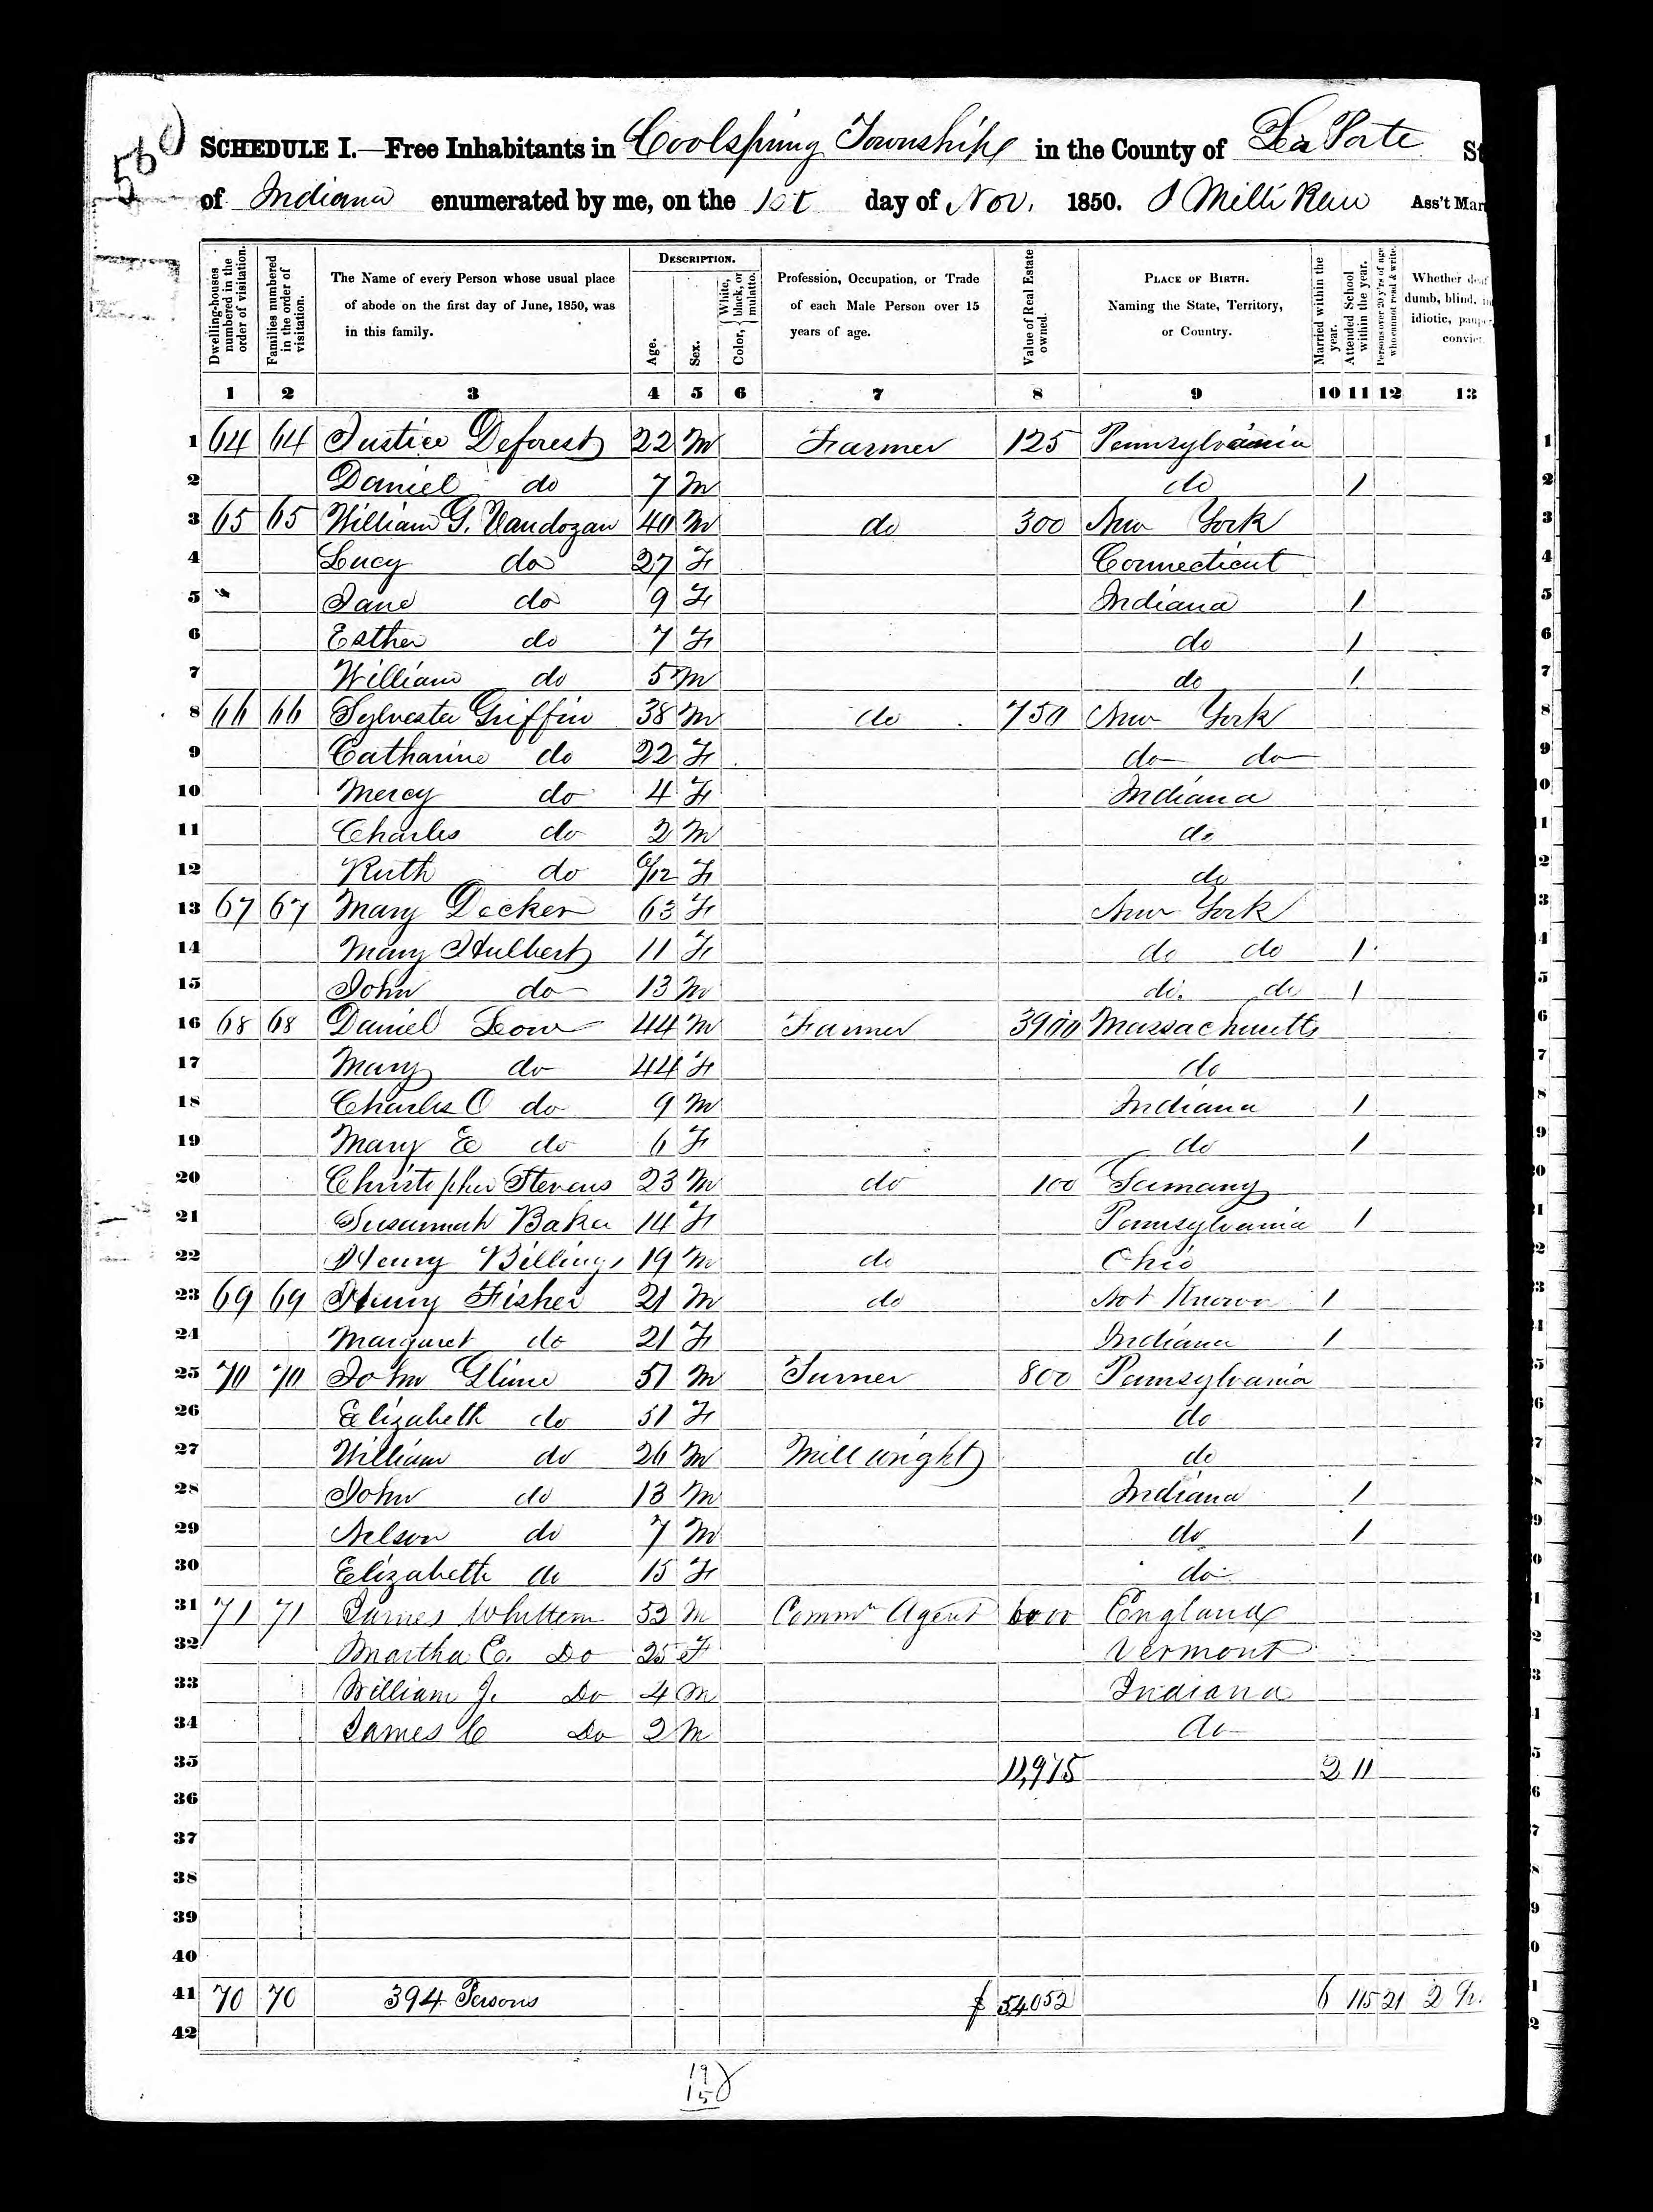 560
SCHEDULE I.—Free Inhabitants in Coolspring Township in the County of La Porte St
of Indiana enumerated by me, on the 1st day of Nov. 1850. Ass't Mar
Dwelling-houses numbered in the order of visitation.
Families numbered in the order of visitation.
The Name of every Person whose usual place of abode on the first day of June, 1850, was in this family.
DESCRIPTION.
Age.
Sex.
Color, White, black, or mulatto.
Profession, Occupation, or Trade of each Male Person over 15 years of age.
Value of Real Estate owned.
PLACE OF BIRTH. Naming the State, Territory, or Country.
Married within the year.
Attended School within the year.
Persons over 20 y'rs of age who cannot read & write.
Whether deaf dumb, blind, idiotic, convict
1 2 3 4 5 6 7 8 9 10 11 12 13
1 64 64 Justice Deforest 22 M Farmer 125 Pennsylvania 1
2 Daniel do 7 M do 1 2
3 65 65 William G. Vandozan 40 M do 300 New York 3
4 Lucy do 27 F Connecticut 4
5 Jane do 9 F Indiana 1 5
6 Esther do 7 F do 1 6
7 William do 5 M do 1 7
8 66 66 Sylvester Griffin 38 M do 750 New York 8
9 Catharine do 22 F do do 9
10 Mercy do 4 F Indiana 10
11 Charles do 2 M do 1
12 Ruth do 6/12 F do 2
13 67 67 Mary Decker 63 F New York 3
14 Mary Hulbert 11 F do do 1 4
15 John do 13 M do. do 1 5
16 68 68 Daniel Low 44 M Farmer 3900 Massachusetts 6
17 Mary do 44 F do 7
18 Charles O do 9 M Indiana 1 8
19 Mary E do 6 F do 1 9
20 Christopher Stevens 23 M do 100 Germany 0
21 Susannah Baker 14 F Pennsylvania 1 1
22 Henry Billings 19 M do Ohio 2
23 69 69 Henry Fisher 21 M do Not Known 1 3
24 Margaret do 21 F Indiana 1 4
25 70 70 John Glime 51 M Turner 800 Pennsylvania 5
26 Elizabeth do 51 F do 6
27 William do 26 M Mill wright do 7
28 John do 13 M Indiana 1 8
29 Nelson do 7 M do 1 9
30 Elizabeth do 15 F do 0
31 71 71 James Whittem 53 M Comm Agent 6000 England 1
32 Martha E. Do 25 F Vermont 2
33 William J. Do 4 M Indiana 3
34 James C Do 2 M do 4
35 11,975 2 11 5
36 6
37 7
38 8
39 9
40 0
41 70 70 394 Persons $ 54052 6 115 21 2 1
42 2
19
15